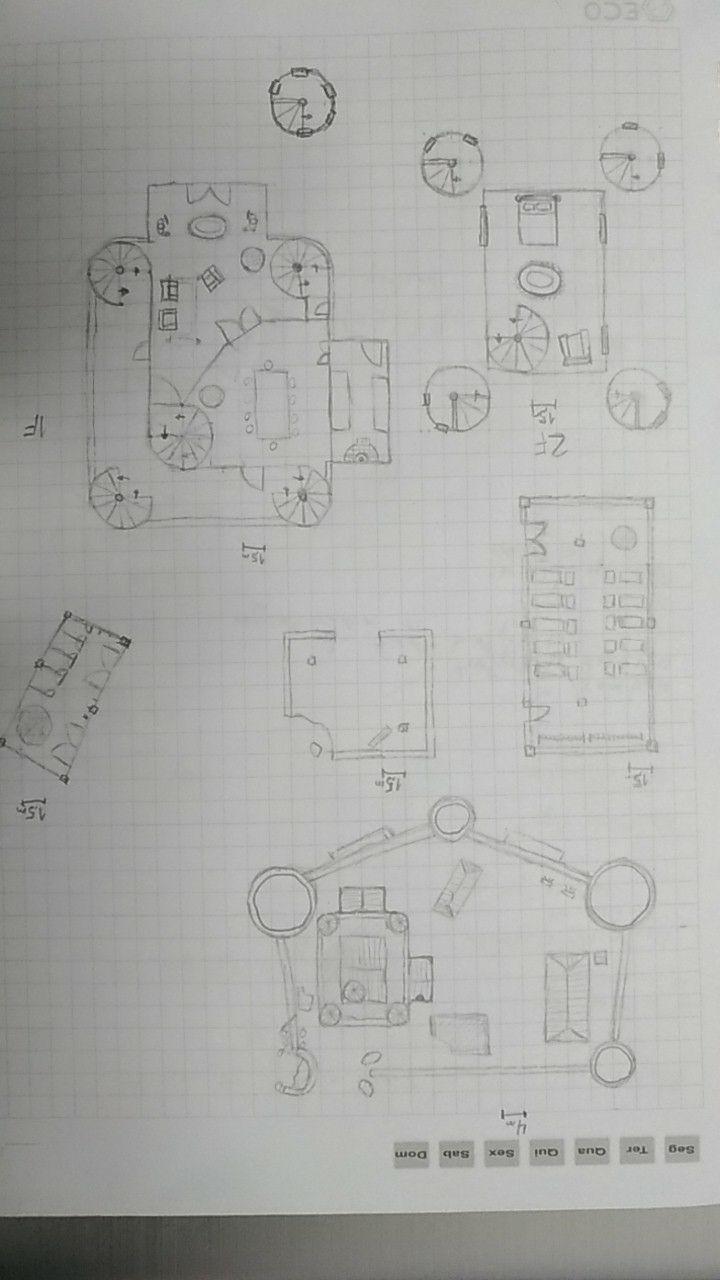 Seg Ter Qua Qui Sex Sab Dom
4m
1.5m
15
1.5m
15m
2F
15
1F
ECO